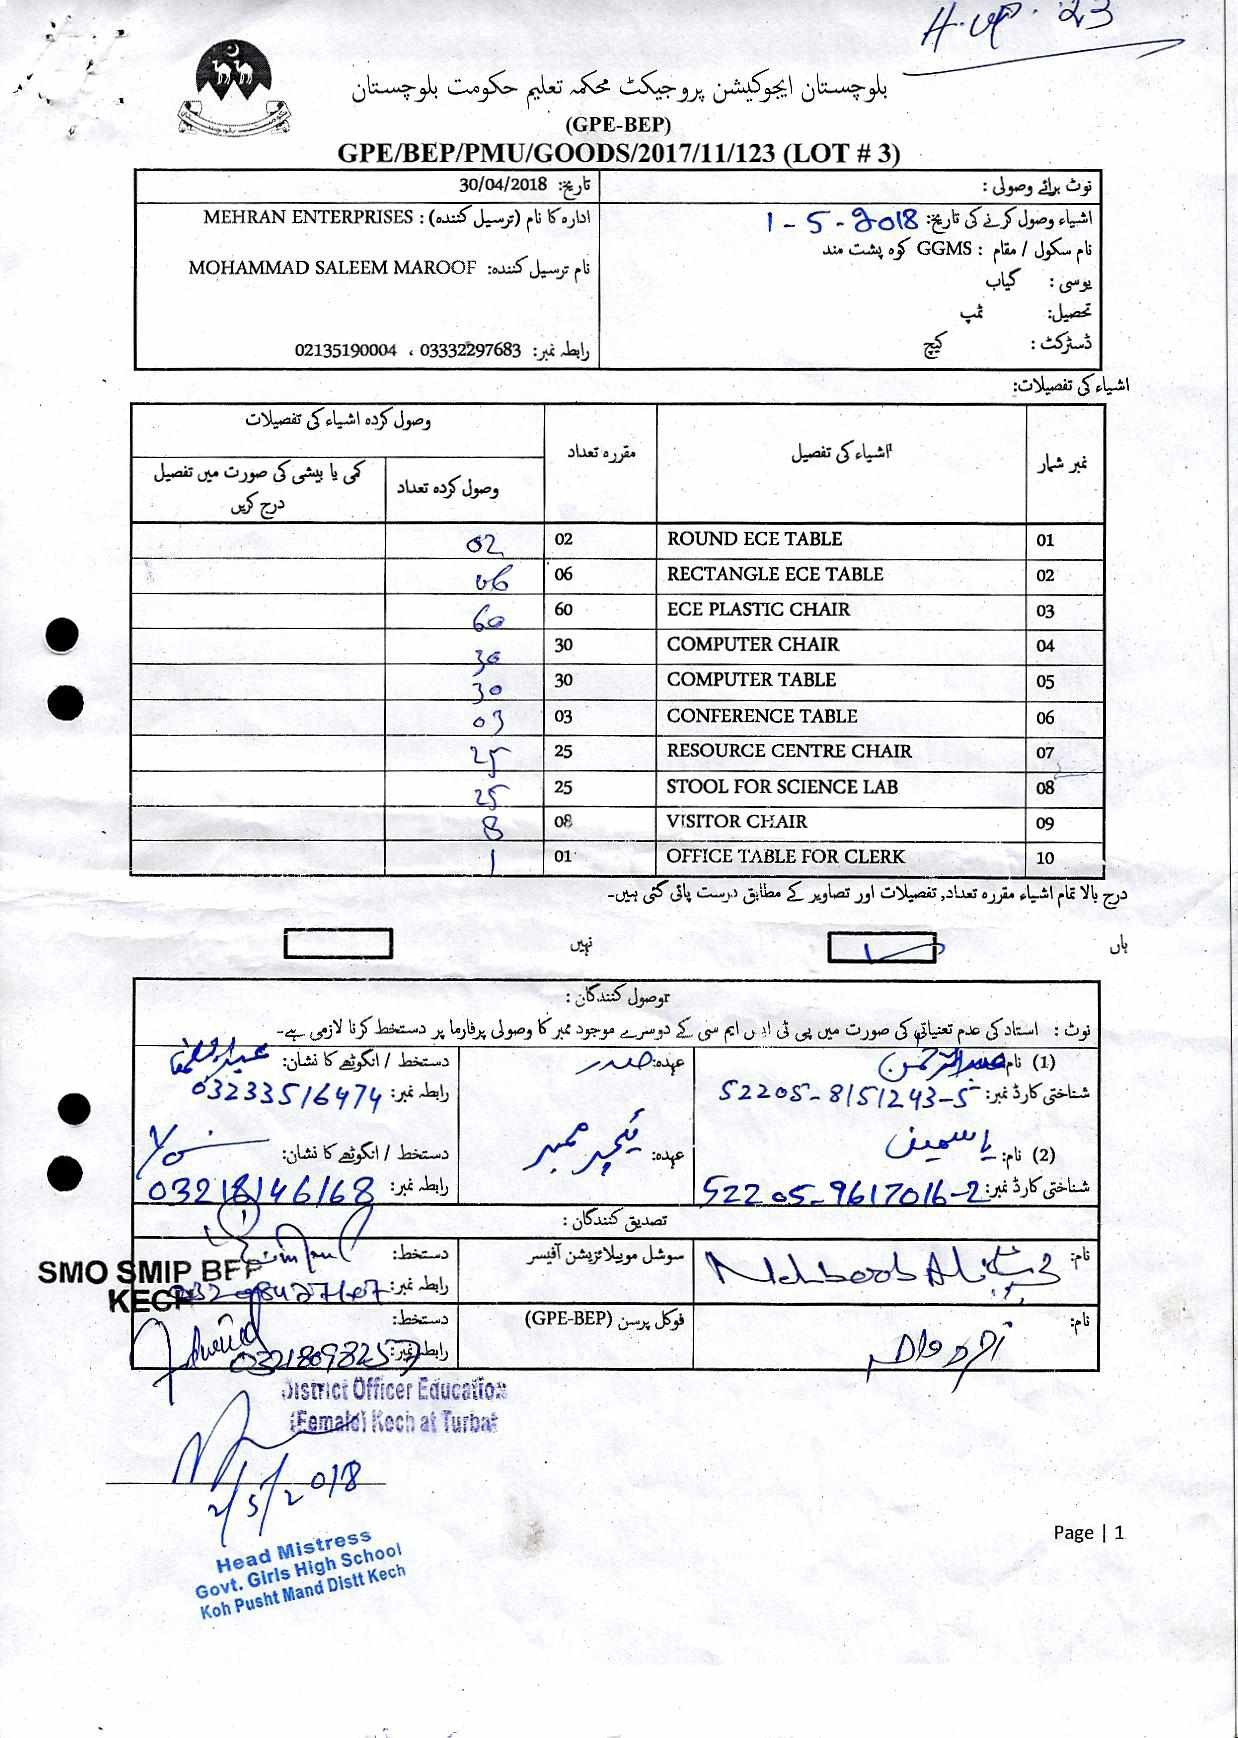 بلوچستان ایجوکیشن پروجیکٹ محکمہ تعلیم حکومت بلوچستان
(GPE-BEP)
GPE/BEP/PMU/GOODS/2017/11/123 (LOT # 3)
نوٹ برائے وصولی :
اشیاء وصول کرنے کی تاریخ: 1-5-2018
نام سکول / مقام : GGMS کوہ پشت مند
یوسی : گیاب
تحصیل: تمپ
ڈسٹرکٹ : کیچ
تاریخ: 30/04/2018
ادارہ کا نام (ترسیل کنندہ) : MEHRAN ENTERPRISES
نام ترسیل کنندہ: MOHAMMAD SALEEM MAROOF
رابطہ نمبر: 03332297683 ، 02135190004
اشیاء کی تفصیلات:
نمبر شمار اشیاء کی تفصیل مقررہ تعداد وصول کردہ اشیاء کی تفصیلات
وصول کردہ تعداد کمی یا بیشی کی صورت میں تفصیل درج کریں
01 ROUND ECE TABLE 02 02
02 RECTANGLE ECE TABLE 06 06
03 ECE PLASTIC CHAIR 60 60
04 COMPUTER CHAIR 30 30
05 COMPUTER TABLE 30 30
06 CONFERENCE TABLE 03 03
07 RESOURCE CENTRE CHAIR 25 25
08 STOOL FOR SCIENCE LAB 25 25
09 VISITOR CHAIR 08 8
10 OFFICE TABLE FOR CLERK 01 1
درج بالا تمام اشیاء مقررہ تعداد, تفصیلات اور تصاویر کے مطابق درست پائی گئی ہیں۔
ہاں نہیں
وصول کنندگان :
نوٹ : استاد کی عدم تعیناتی کی صورت میں پی ٹی ایس ایم سی کے دوسرے موجود ممبر کا وصولی پرفارما پر دستخط کرنا لازمی ہے۔
(1) نام: عبدالرحمن عہدہ: صدر دستخط / انگوٹھے کا نشان:
شناختی کارڈ نمبر: 52205-8151243-5 رابطہ نمبر: 03233516474
(2) نام: یاسمین عہدہ: ٹیچر ممبر دستخط / انگوٹھے کا نشان:
شناختی کارڈ نمبر: 52205-9617016-2 رابطہ نمبر: 03218146168
تصدیق کنندگان :
نام: Mehboob Ali سوشل موبیلائزیشن آفیسر دستخط:
رابطہ نمبر:
SMO SMIP BEP
KECH
نام: فوکل پرسن (GPE-BEP) دستخط:
رابطہ نمبر:
District Officer Education
(Female) Kech at Turbat
2/5/2018
Head Mistress
Govt. Girls High School
Koh Pusht Mand Distt Kech
Page | 1